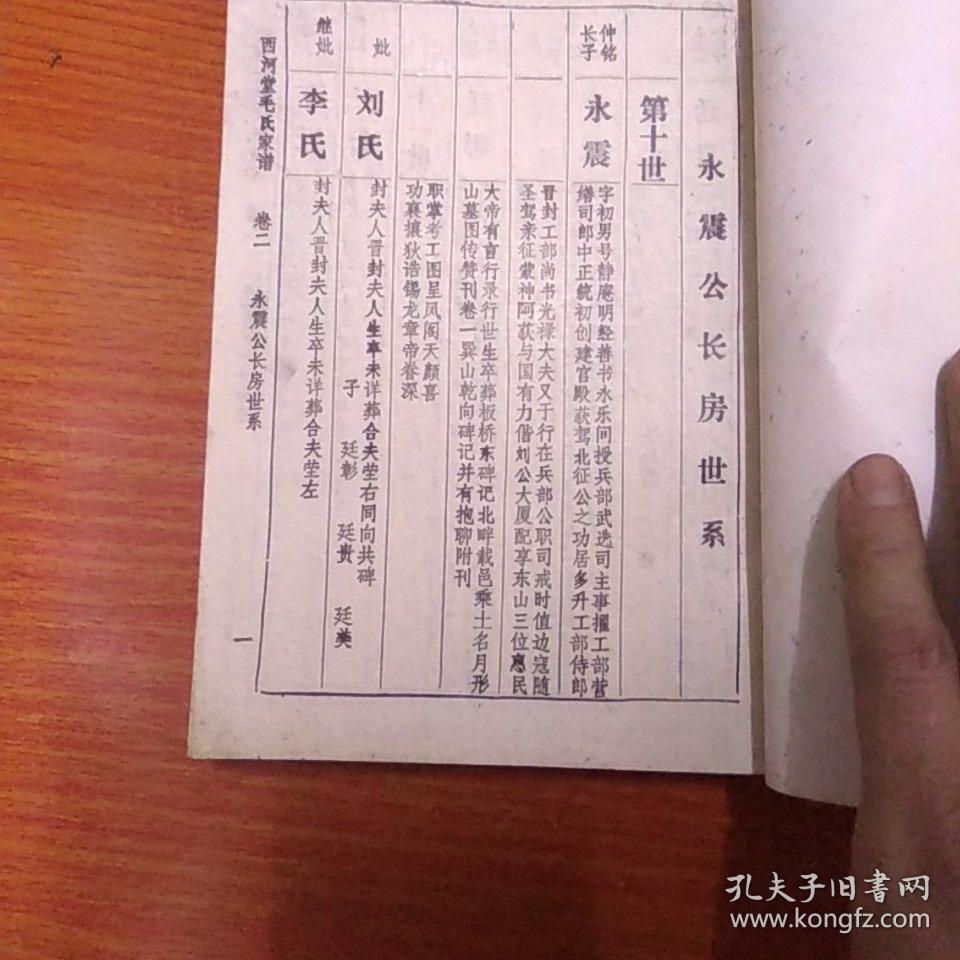 永震公长房世系
第十世
仲铭
长子
永震
字初男号静庵明经善书永乐间授兵部武选司主事擢工部营
缮司郎中正统初创建官殿获驾北征公之功居多升工部侍郎
晋封工部尚书光禄大夫又于行在兵部公职司戎时值边寇随
圣驾亲征蒙神阿获与国有力偕刘公大厦配享东山三位惠民
大帝有言行录行世生卒葬板桥东碑记北畔载邑乘土名月形
山墓图传赞刊卷一巽山乾向碑记并有抱聊附刊
职掌考工图呈凤阁天颜喜
功襄攘狄诰锡龙章帝眷深
妣
刘氏
封夫人晋封夫人生卒未详葬合夫茔右同向共碑
子 廷彰 廷贵 廷美
继妣
李氏
封夫人晋封夫人生卒未详葬合夫茔左
西河堂毛氏家谱 卷二 永震公长房世系 一
孔夫子旧书网
www.kongfz.com